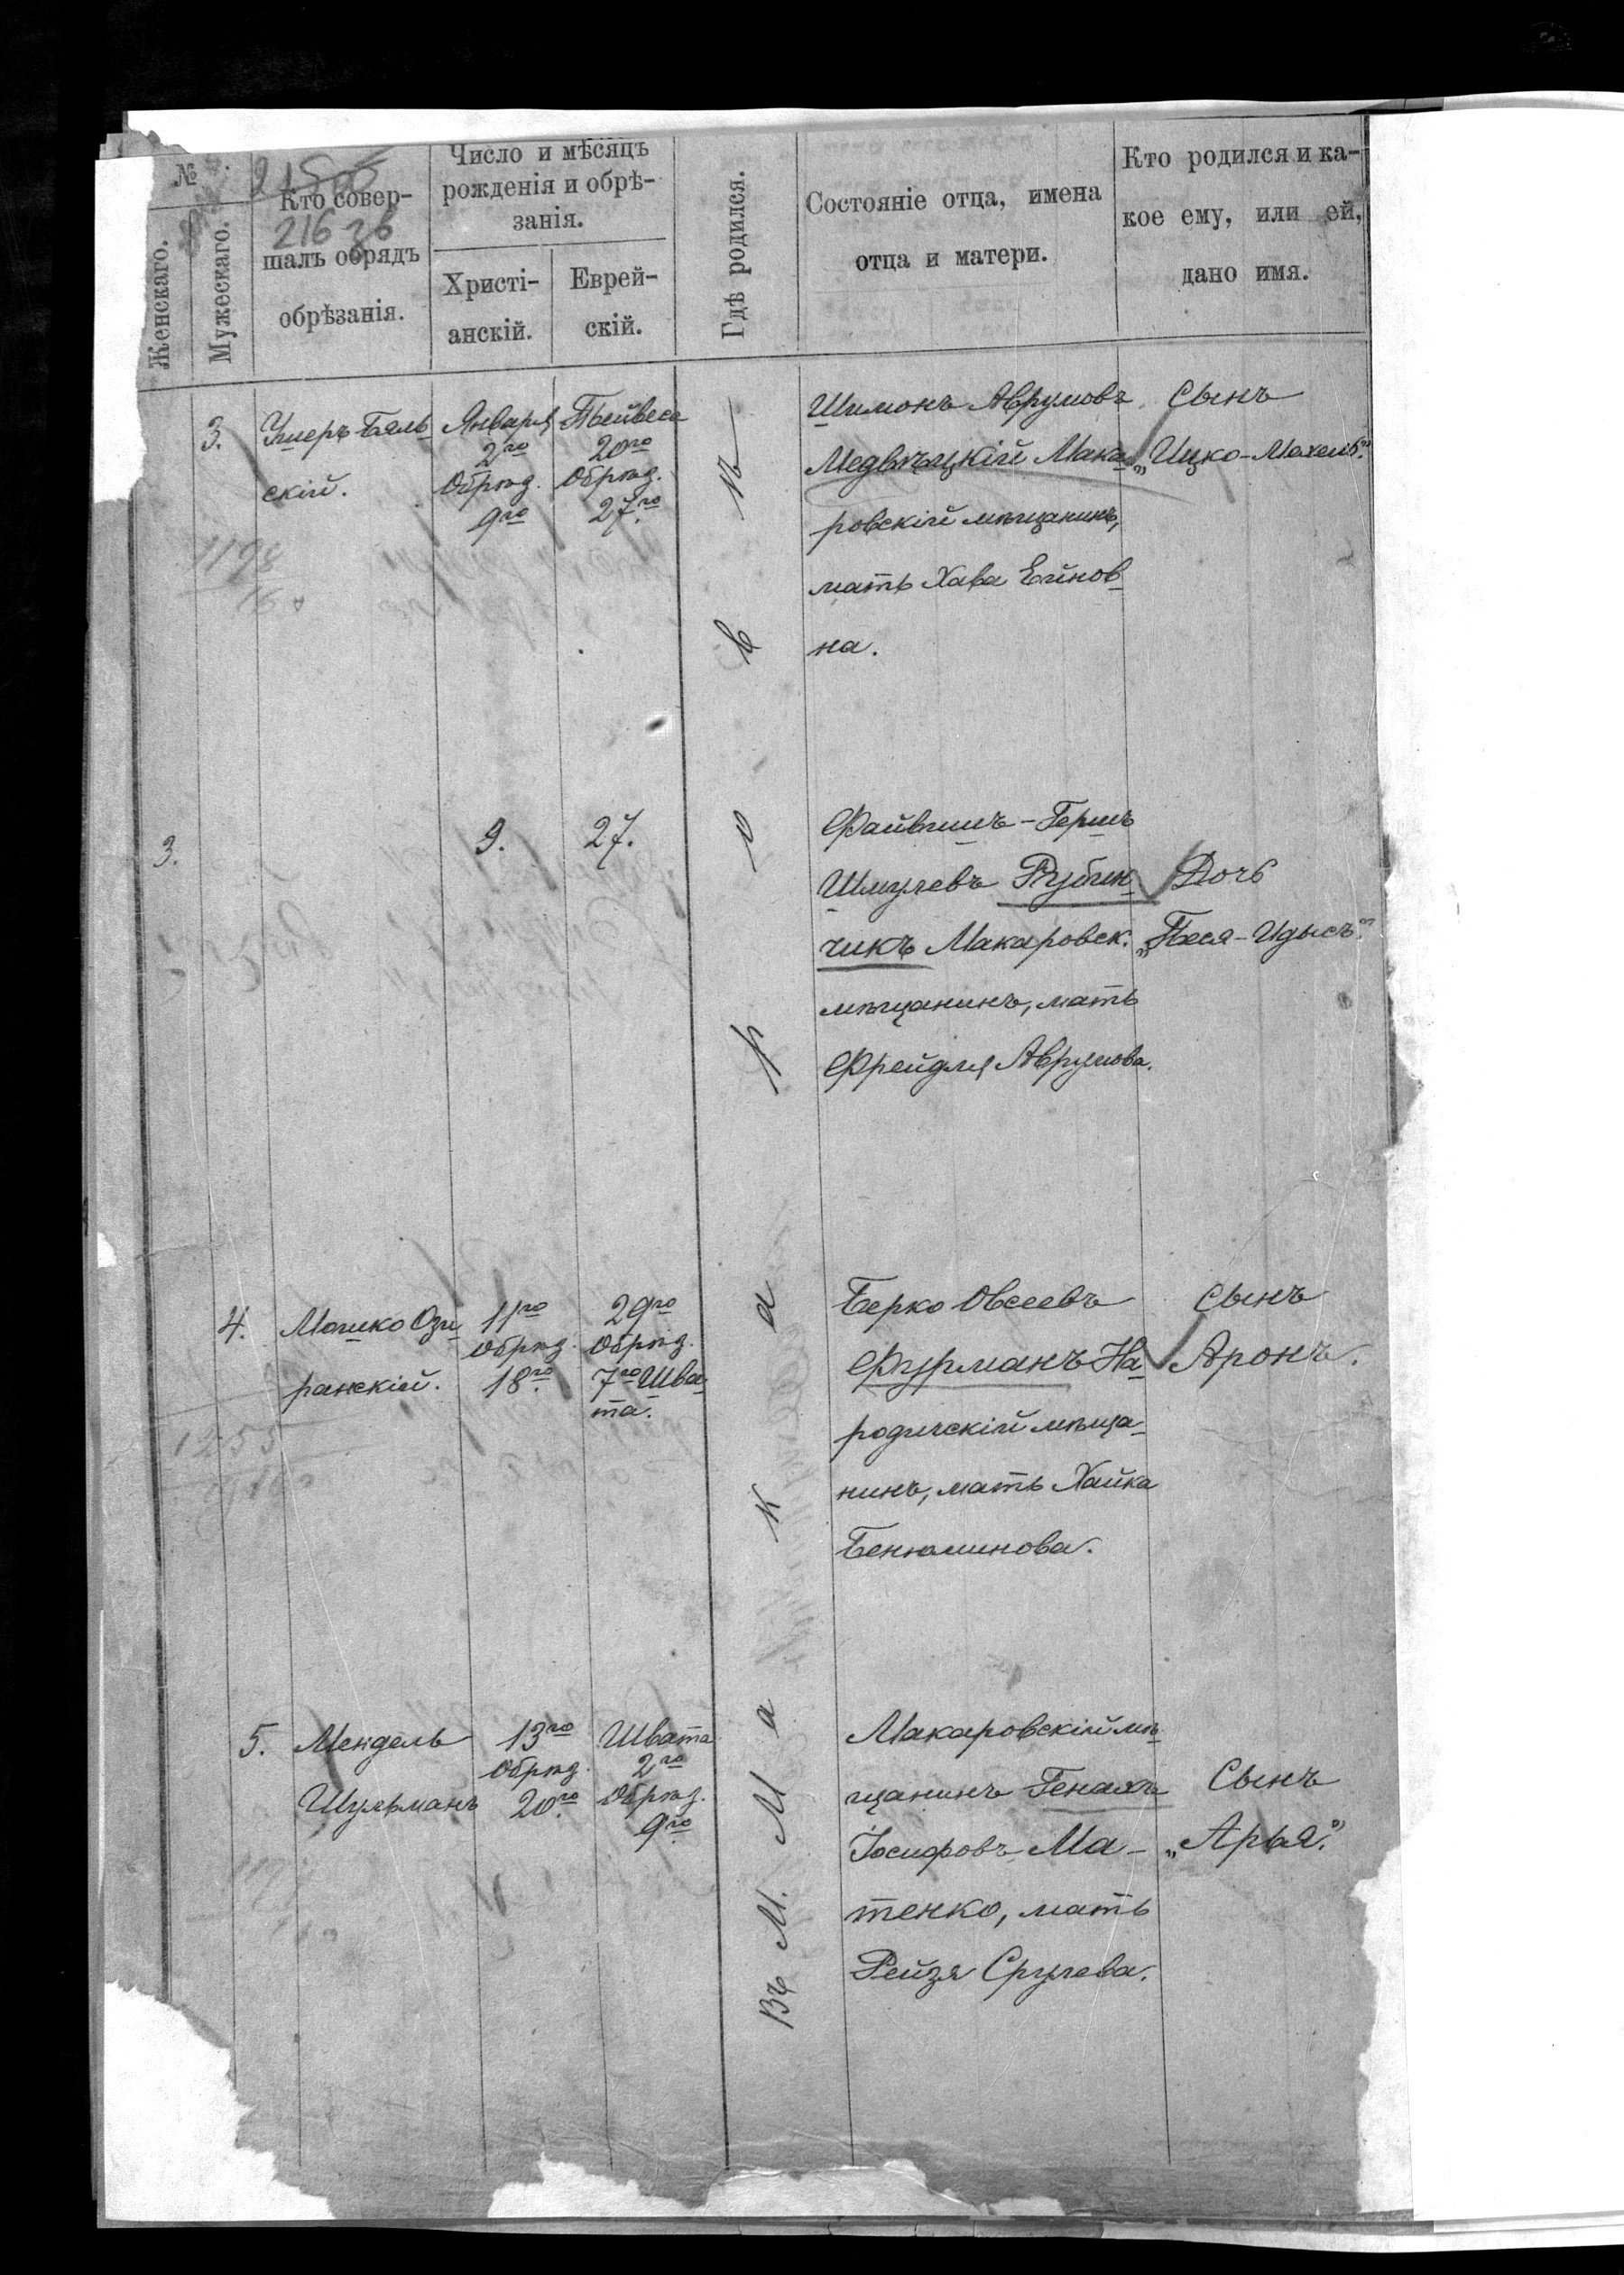 №
21505
216 зв
Женскаго.
Мужескаго.
Кто совер-
шалъ обрядъ
обрѣзанія.
Число и мѣсяцъ
рожденія и обрѣ-
занія.
Христі-
анскій.
Еврей-
скій.
Гдѣ родился.
Состояніе отца, имена
отца и матери.
Кто родился и ка-
кое ему, или ей,
дано имя.
Въ М. Макаровѣ
3.
Бяль-
скій.
Января
2го
Обрѣз.
9го
Тейвеса
20го
Обрѣз.
27го
Шимонъ Аврумовъ
Медвѣцкій Мака-
ровскій мѣщанинъ,
мать Хава Ейнов-
на.
Сынъ
„Ицко-Мохель“.
3.
9.
27.
Файвишъ-Гершъ
Шмулевъ Рубин-
чикъ Макаровск.
мѣщанинъ, мать
Фрейдля Аврумова.
Дочь
„Песя-Идысъ“.
4.
Мошко Ози-
ранскій.
11го
Обрѣз.
18го
29го
Обрѣз.
7го Шва-
та.
Берко Овсеевъ
Фурманъ На-
родичскій мѣща-
нинъ, мать Хайка
Бенюминова.
Сынъ
Аронъ.
1255
5.
Мендель
Шульманъ
13го
Обрѣз.
20го
Швата
2го
Обрѣз.
9го
Макаровскій мѣ-
щанинъ Генахъ
Іосифовъ Ма-
тенко, мать
Рейзя Срулева.
Сынъ
„Арья“.